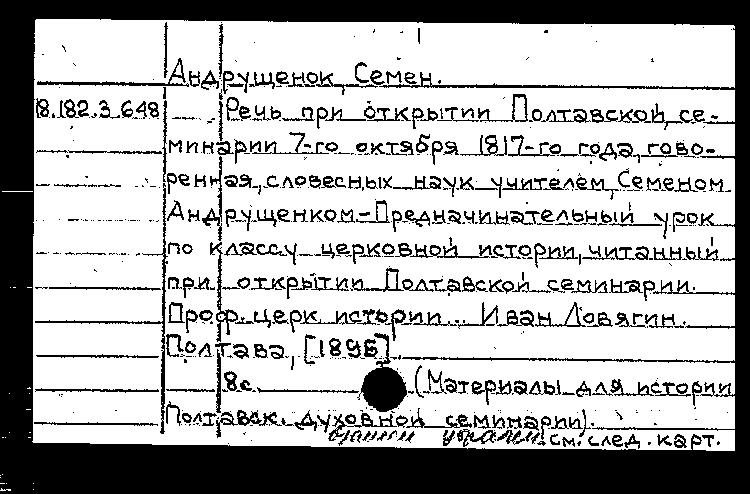 Андрущенок, Семен.
18.182.3.648 Речь при открытии Полтавской, се-
минарии 7-го октября 1817-го года, гово-
ренная, словесных наук учителем, Семеном
Андрущенком-Предначинательный урок
по классу церковной истории, читанный
при открытии Полтавской семинарии.
Проф. церк. истории... Иван Ловягин.
Полтава, [1896]
8с. (Материалы для истории
Полтавск. духовной семинарии).
см. след. карт.